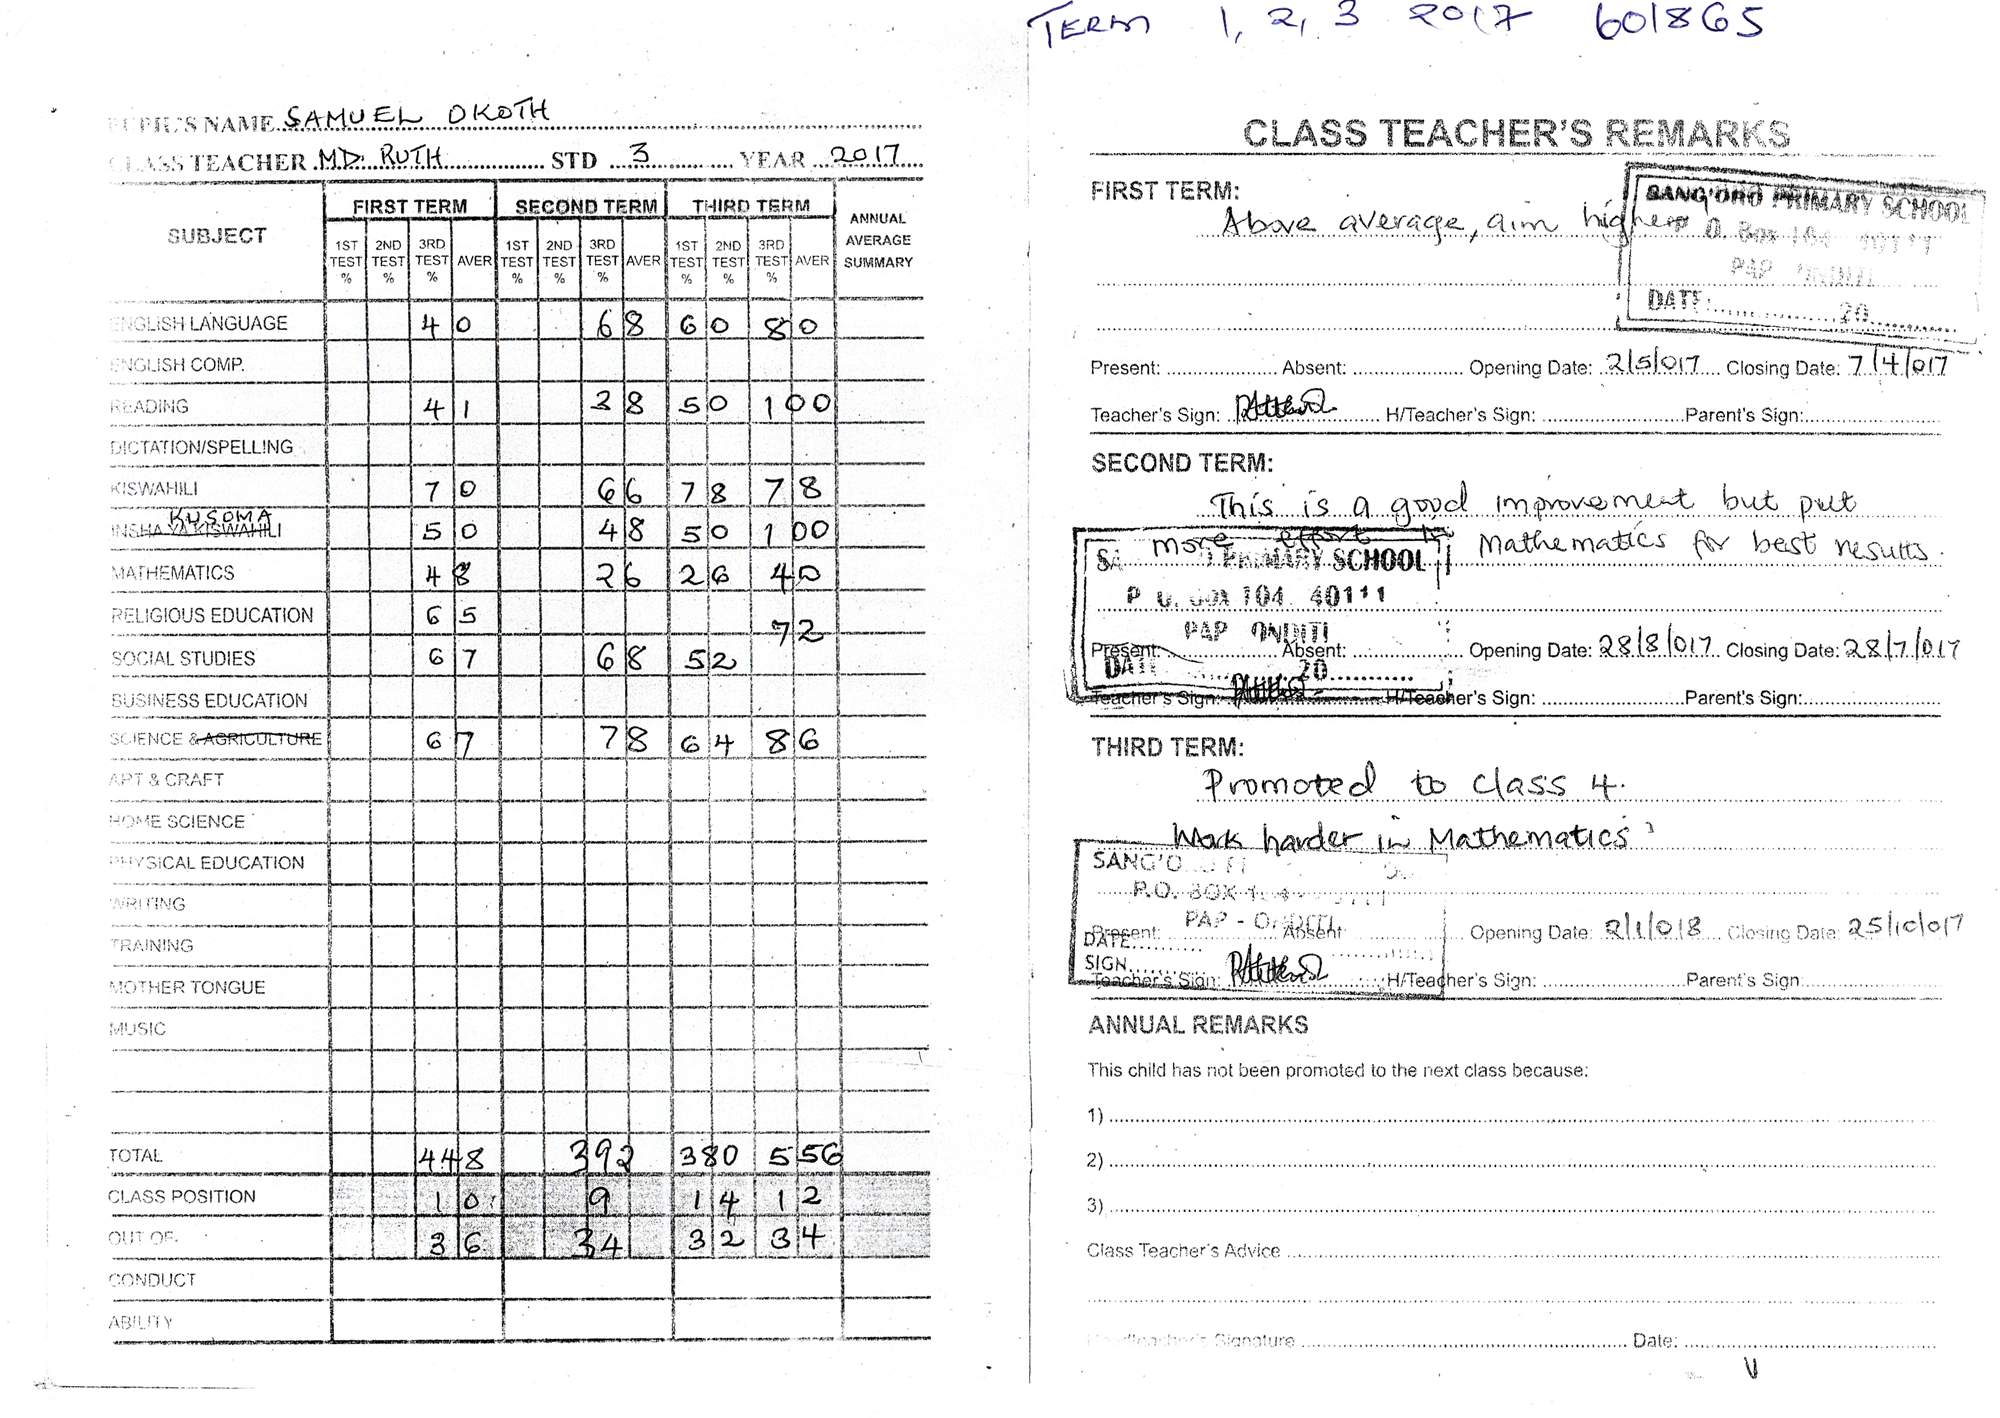 TERM 1, 2, 3 2017 601865
PUPIL'S NAME SAMUEL OKOTH
CLASS TEACHER MD. RUTH STD 3 YEAR 2017
SUBJECT FIRST TERM SECOND TERM THIRD TERM ANNUAL AVERAGE SUMMARY
1ST TEST % 2ND TEST % 3RD TEST % AVER 1ST TEST % 2ND TEST % 3RD TEST % AVER 1ST TEST % 2ND TEST % 3RD TEST % AVER
ENGLISH LANGUAGE 40 68 60 80
ENGLISH COMP.
READING 41 38 50 100
DICTATION/SPELLING
KISWAHILI 70 66 78 78
KUSOMA
INSHA YA KISWAHILI 50 48 50 100
MATHEMATICS 48 26 26 40
RELIGIOUS EDUCATION 65
72
SOCIAL STUDIES 67 68 52
BUSINESS EDUCATION
SCIENCE & AGRICULTURE 67 78 64 86
ART & CRAFT
HOME SCIENCE
PHYSICAL EDUCATION
WRITING
TRAINING
MOTHER TONGUE
MUSIC
TOTAL 448 392 380 556
CLASS POSITION 10 9 14 12
OUT OF 36 34 32 34
CONDUCT
ABILITY
CLASS TEACHER'S REMARKS
FIRST TERM:
Above average, aim higher
SANG'ORO PRIMARY SCHOOL
P. O. Box 104 40111
PAP ONDITI
DATE: 20
Present: Absent: Opening Date: 2/5/017 Closing Date: 7/4/017
Teacher's Sign: H/Teacher's Sign: Parent's Sign:
SECOND TERM:
This is a good improvement but put
more effort in Mathematics for best results.
SA PRIMARY SCHOOL
P O. Box 104 40111
PAP ONDITI
DATE 20
Present: Absent: Opening Date: 28/8/017 Closing Date: 28/7/017
Teacher's Sign: H/Teacher's Sign: Parent's Sign:
THIRD TERM:
Promoted to class 4.
Work harder in Mathematics
SANG'O
P.O. BOX
PAP - ONDITI
DATE
SIGN
Present: Absent Opening Date: 2/1/018 Closing Date: 25/10/017
Teacher's Sign: H/Teacher's Sign: Parent's Sign
ANNUAL REMARKS
This child has not been promoted to the next class because:
1)
2)
3)
Class Teacher's Advice
Headteacher's Signature Date: